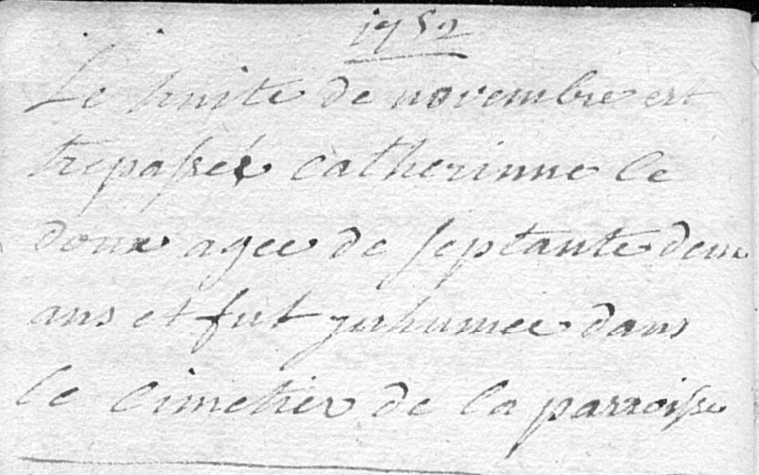 1752
Le huite de novembre est
trepassée catherinne le
doux agee de septante deux
ans et fut jnhumee dans
le cimetier de la parroisse